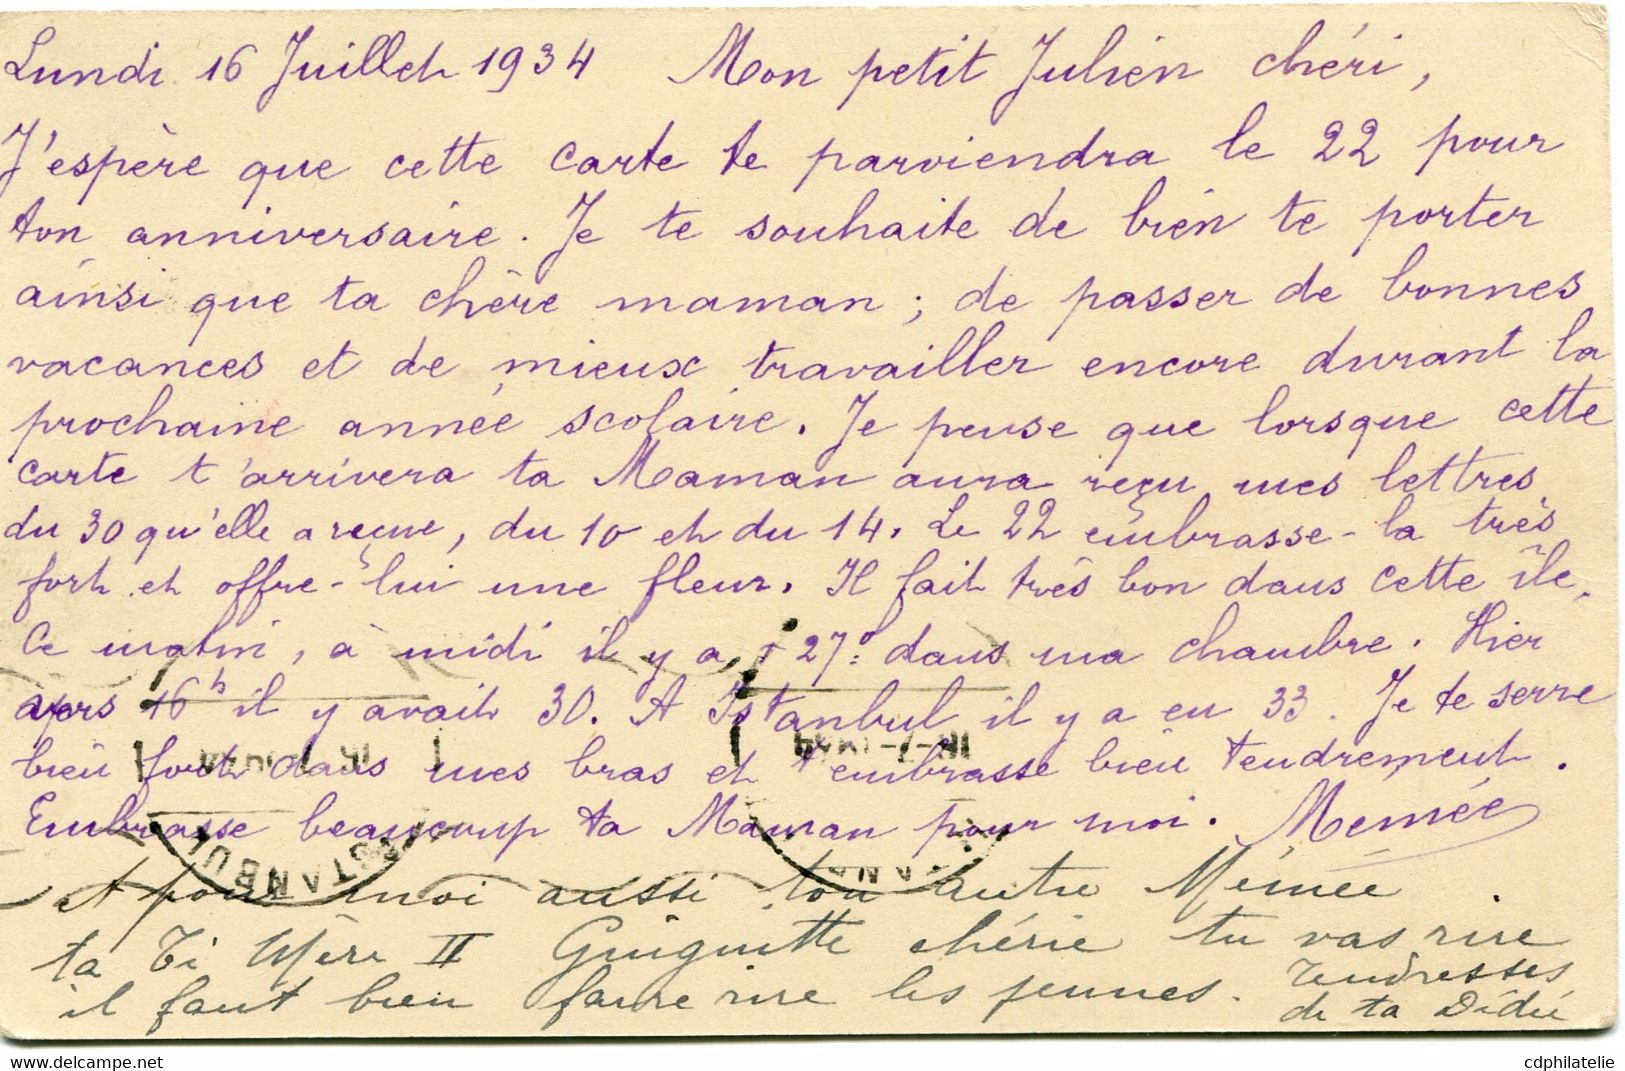 Lundi 16 Juillet 1934 Mon petit Julien chéri,
J'espère que cette carte te parviendra le 22 pour
ton anniversaire. Je te souhaite de bien te porter
ainsi que ta chère maman; de passer de bonnes
vacances et de mieux travailler encore durant la
prochaine année scolaire. Je pense que lorsque cette
carte t'arrivera ta Maman aura reçu mes lettres
du 30 qu'elle a reçue, du 10 et du 14. Le 22 embrasse-la très
fort et offre-lui une fleur. Il fait très bon dans cette île.
Ce matin, à midi il y a + 27° dans ma chambre. Hier
apers 16h il y avait 30. A Istanbul il y a eu 33. Je te serre
bien fort dans mes bras et t'embrasse bien tendrement.
Embrasse beaucoup ta Maman pour moi. Memée
Et pour moi aussi ton autre Mémée.
ta Ti Mère II Guiguitte chérie tu vas rire
il faut bien faire rire les jeunes. Tendresses
de ta Dédée
ISTANBUL
cdphilatelie